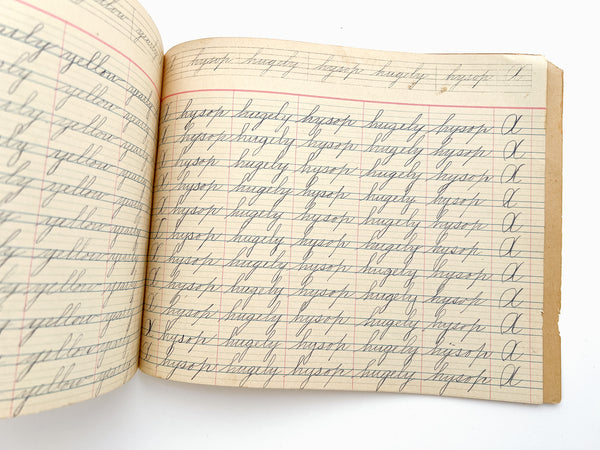 yellow yearly
yellow yearly
yellow yearly
yellow yearly
yellow yearly
yellow yearly
yellow yearly
yellow yearly
yellow yearly
yellow yearly
yellow yearly
yellow yearly
hysop hugely hysop hugely hysop X
hysop hugely hysop hugely hysop X
hysop hugely hysop hugely hysop X
hysop hugely hysop hugely hysop X
hysop hugely hysop hugely hysop X
hysop hugely hysop hugely hysop X
hysop hugely hysop hugely hysop X
hysop hugely hysop hugely hysop X
hysop hugely hysop hugely hysop X
hysop hugely hysop hugely hysop X
hysop hugely hysop hugely hysop X
hysop hugely hysop hugely hysop X